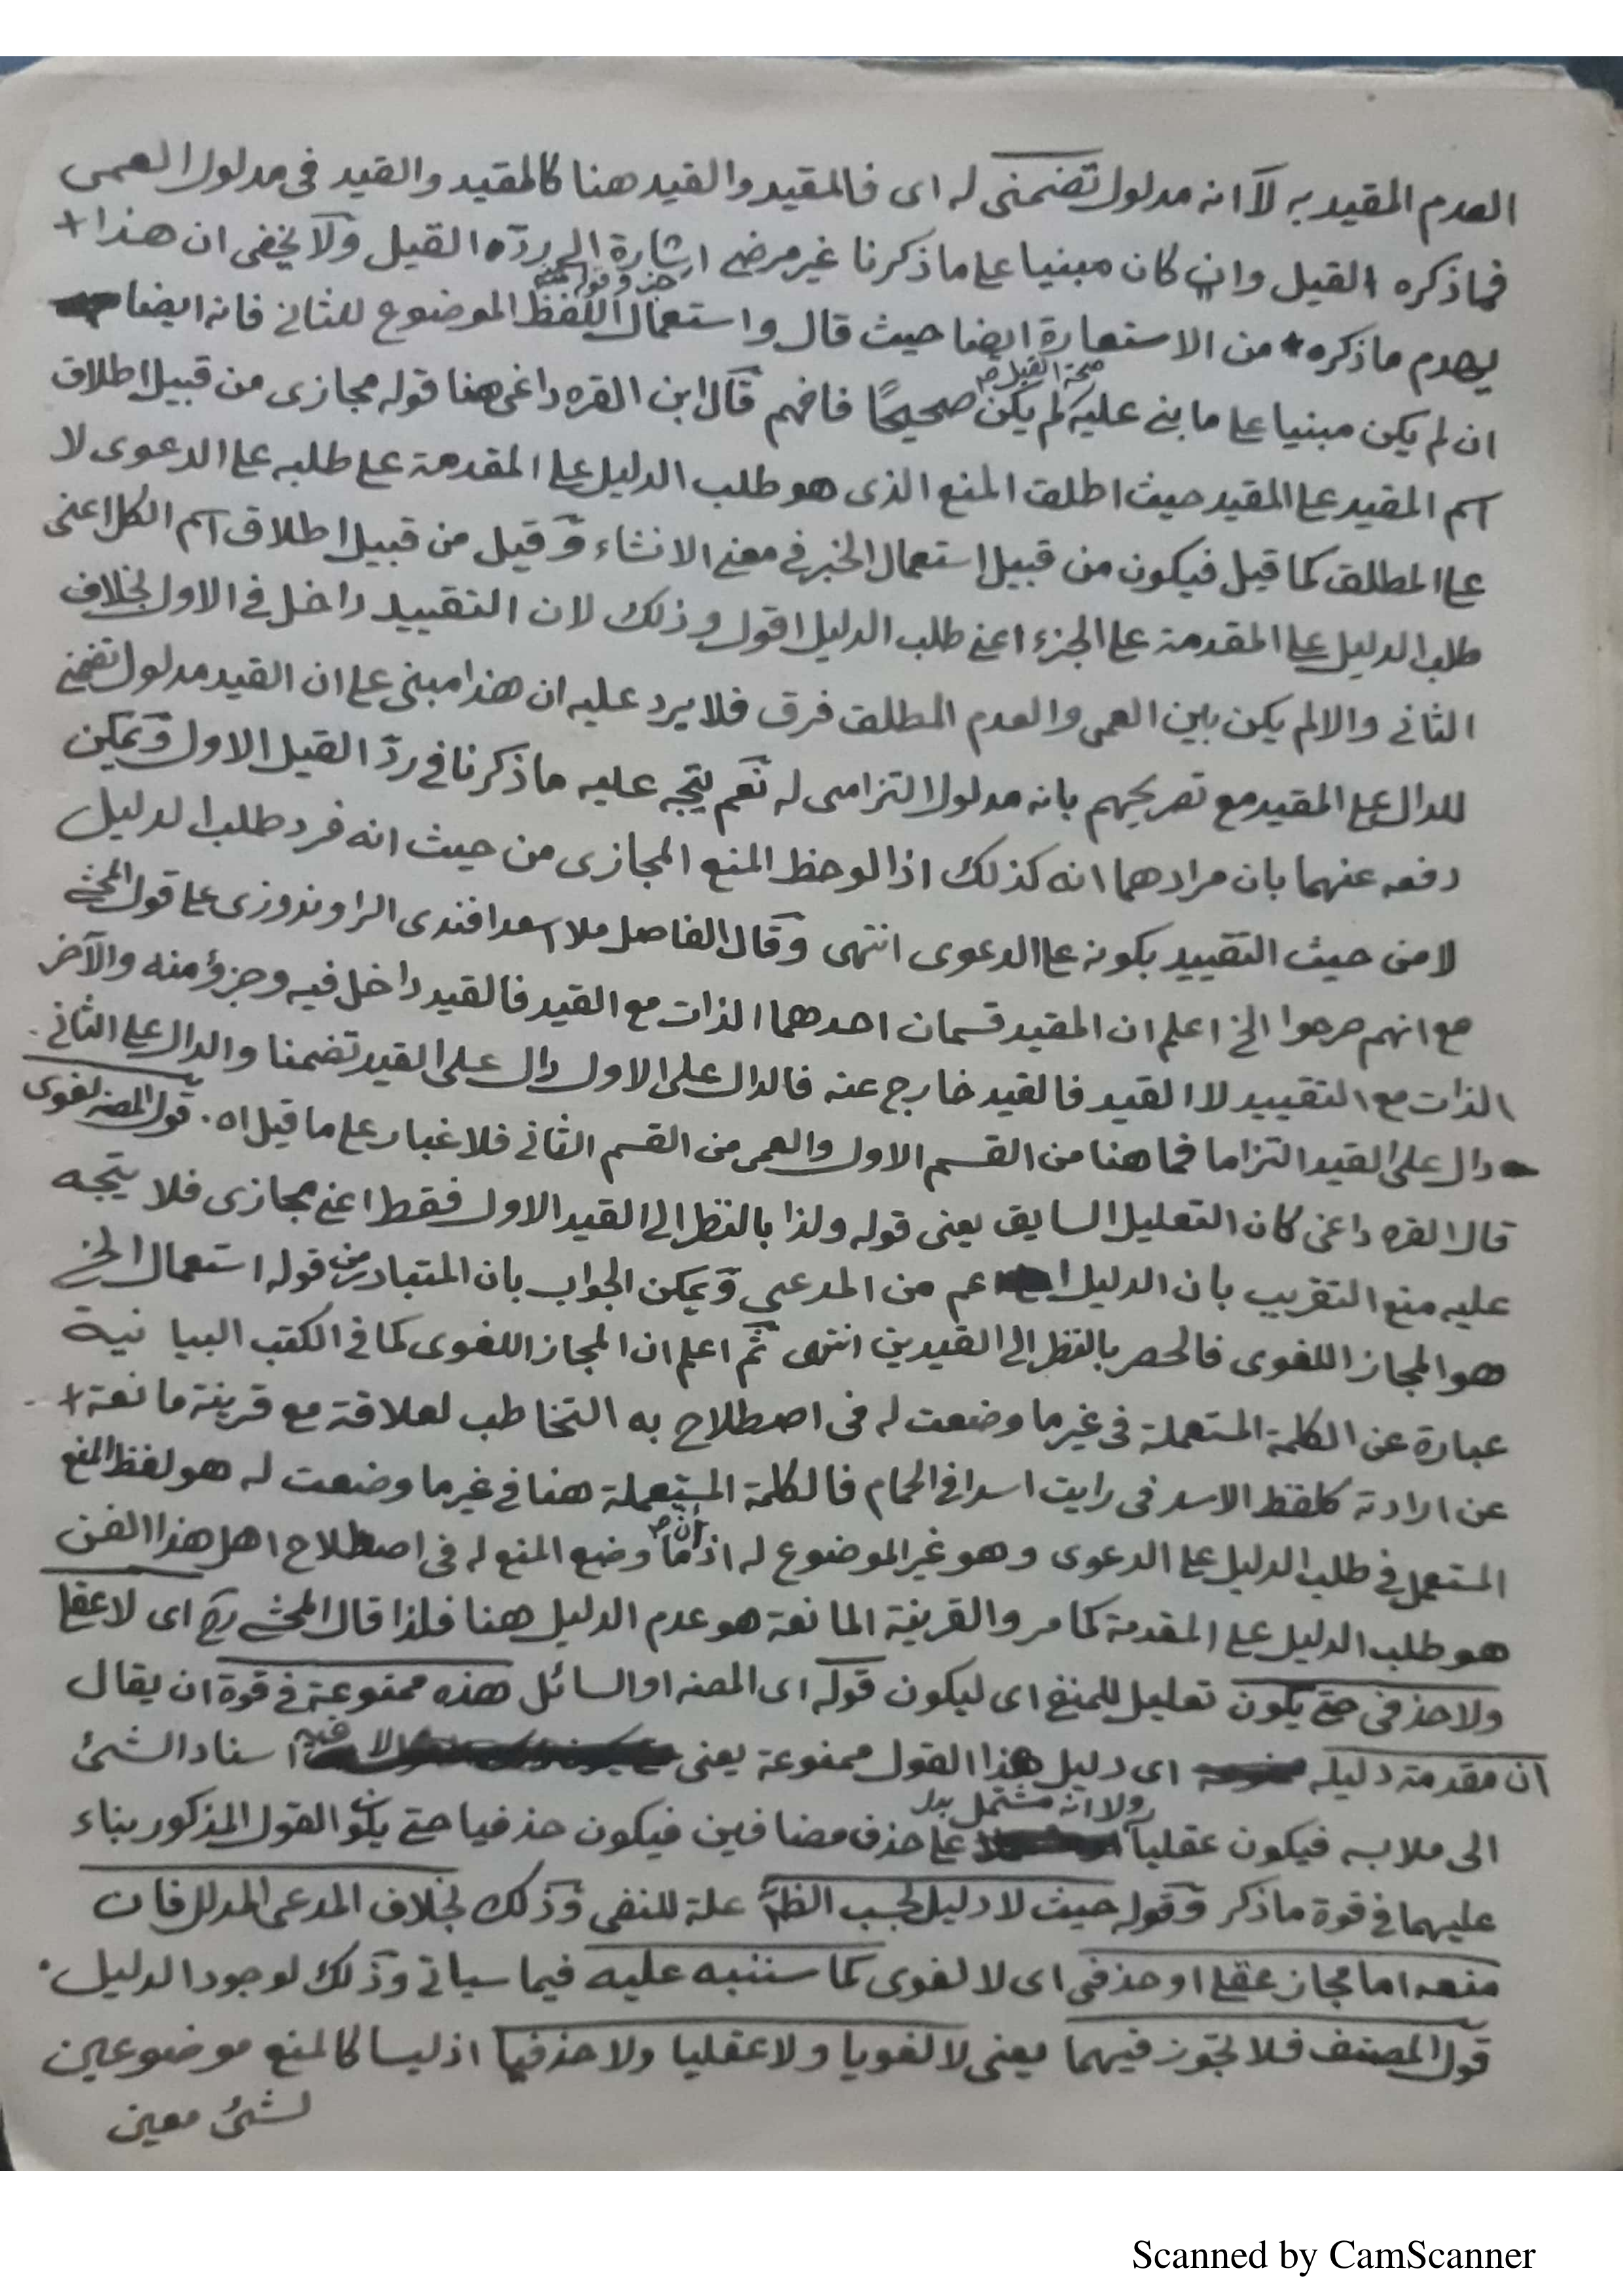 العدم المقيد به لآ انه مدلول تضمنى له اى فالمقيد والقيد هنا كالمقيد والقيد فى مدلول العمى
فما ذكره القيل وان كان مبنيا على ما ذكرنا غير مرضى اشارة الى ردّه القيل ولآ يخفى ان هذا +
يهدم ما ذكره من الاستعارة ايضا حيث قال واستعمال اللفظ الموضوع للثانى فانه ايضا
ان لم يكن مبنيا على ما بنى عليه صحة القيل صح لم يكن صحيحًا فافهم قآل ابن القره داغى هنا قوله مجازى من قبيل اطلاق
اسم المقيد على المقيد حيث اطلق المنع الذى هو طلب الدليل على المقدمة على طلبه على الدعوى لا
على المطلق كما قيل فيكون من قبيل استعمال الخبر فى معنى الانشاء وقيل من قبيل اطلاق اسم الكل اعنى
طلب الدليل على المقدمة على الجزء اعنى طلب الدليل اقول وذلك لان التقييد داخل فى الاول بخلاف
الثانى والا لم يكن بين العمى والعدم المطلق فرق فلا يرد عليه ان هذا مبنى على ان القيد مدلول تضمنى
للدال على المقيد مع تصريحهم بانه مدلول التزامى له نعم يتجه عليه ما ذكرنا فى ردّ القيل الاول ويمكن
دفعه عنهما بان مرادهما انه كذلك اذا لوحظ المنع المجازى من حيث انه فرد طلب الدليل
لا من حيث التقييد بكونه على الدعوى انتهى وقآل الفاضل ملا اسعد افندى الراوندوزى على قول المحشى
مع انهم صرحوا الخ اعلم ان المقيد قسمان احدهما الذات مع القيد فالقيد داخل فيه وجزؤ منه والآخر
الذات مع التقييد لا القيد فالقيد خارج عنه فالدال على الاول دال على القيد تضمنا والدال على الثانى
دال على القيد التزاما فما هنا من القسم الاول والعمى من القسم الثانى فلا غبار على ما قيل اه . قول المصنه لغوى
قال القره داغى كان التعليل السابق يعنى قوله ولذا بالنظر الى القيد الاول فقط اعنى مجازى فلا يتجه
عليه منع التقريب بان الدليل اعم من المدعى ويمكن الجواب بان المتبادر من قوله استعمال الخ
هو المجاز اللغوى فالحصر بالنظر الى القيدين انتهى ثم اعلم ان المجاز اللغوى كما فى الكتب البيانية
عبارة عن الكلمة المستعملة فى غير ما وضعت له فى اصطلاح به التخاطب لعلاقة مع قرينة مانعة +
عن ارادته كلفظ الاسد فى رايت اسدا فى الحمام فالكلمة المستعملة هنا فى غير ما وضعت له هو لفظ المنع
المستعمل فى طلب الدليل على الدعوى وهو غير الموضوع له اذ ما وضع المنع له فى اصطلاح اهل هذا الفن
هو طلب الدليل على المقدمة كما مر والقرينة المانعة هو عدم الدليل هنا فلذا قال المحشى رح اى لا عقلى
ولا حذفى حتى يكون تعليل للمنفى اى ليكون قوله اى المصنه او السائل هذه ممنوعة فى قوة ان يقال
ان مقدمة دليله اى دليل هذا القول ممنوعة يعنى اسناد الشئ
الى ملابسه فيكون عقليا ولا انه مشتمل على حذف مضافين فيكون حذفيا حتى يكون القول المذكور بناء
عليهما فى قوة ما ذكر وقوله حيث لا دليل بحسب الظ علة للنفى وذلك بخلاف المدعى المدلل فان
منعه اما مجاز عقلى او حذفى اى لا لغوى كما سننبه عليه فيما سياتى وذلك لوجود الدليل .
قول المصنف فلا تجوّز فيهما يعنى لا لغويا ولا عقليا ولا حذفيا اذ ليسا كالمنع موضوعين
لشئ معين
Scanned by CamScanner